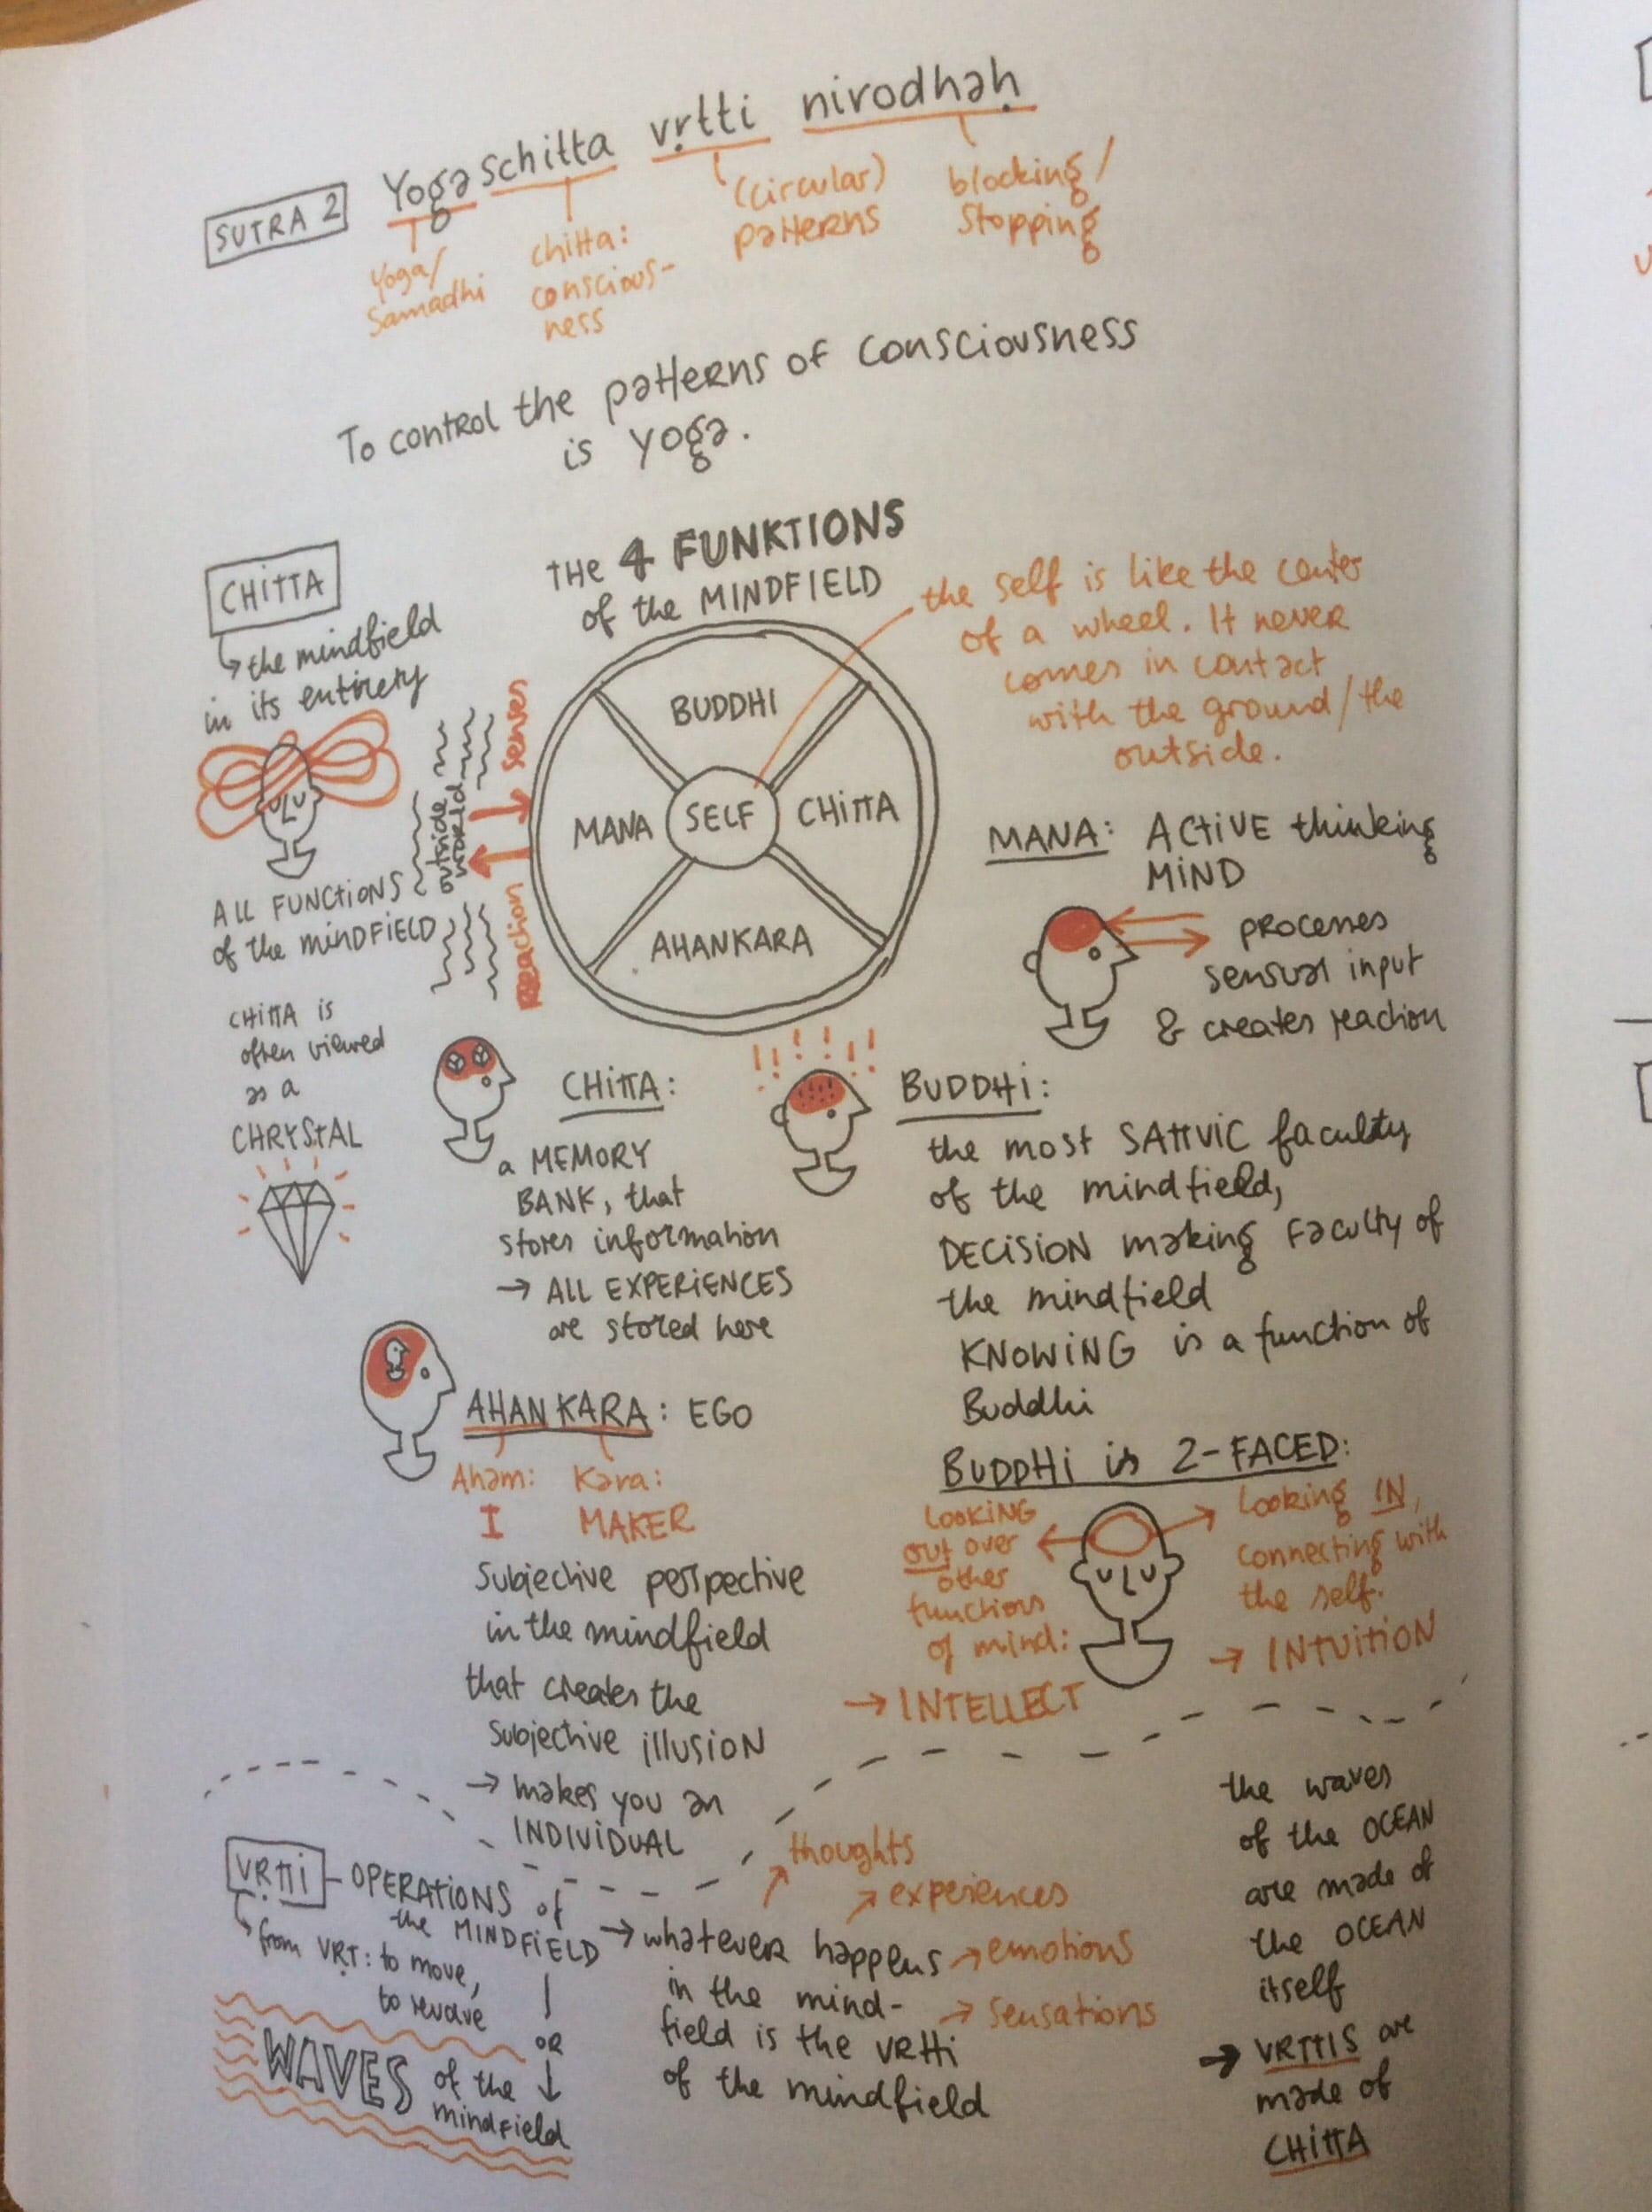 SUTRA 2
Yogaschitta vṛtti nirodhaḥ
Yoga/
Samadhi
chitta:
conscious-
ness
(circular)
patterns
blocking/
stopping
To control the patterns of consciousness
is yoga.
THE 4 FUNKTIONS
of the MINDFIELD
CHITTA
the mindfield
in its entirety
ALL FUNCTIONS
of the MINDFIELD
CHITTA is
often viewed
as a
CHRYSTAL
outside
world
senses
Reaction
BUDDHI
MANA
SELF
CHITTA
AHANKARA
the self is like the center
of a wheel. It never
comes in contact
with the ground/the
outside.
MANA: ACTIVE thinking
MIND
processes
sensual input
& creates reaction
CHITTA:
a MEMORY
BANK, that
stores information
→ ALL EXPERIENCES
are stored here
BUDDHI:
the most SATTVIC faculty
of the mindfield,
DECISION making faculty of
the mindfield
KNOWING is a function of
Buddhi
AHANKARA: EGO
Aham: Kara:
I MAKER
Subjective perspective
in the mindfield
that creates the
subjective illusion
→ makes you an
INDIVIDUAL
BUDDHI is 2-FACED:
LOOKING
out over
other
functions
of mind:
→ INTELLECT
Looking IN,
connecting with
the self.
→ INTUITION
VṚTTI - OPERATIONS of
the MINDFIELD
from VṚT: to move,
to
OR
WAVES of the
mindfield
→ whatever happens
in the mind-
field is the vrtti
of the mindfield
thoughts
experiences
emotions
sensations
the waves
of the OCEAN
are made of
the OCEAN
itself
→ VRTTIS are
made of
CHITTA